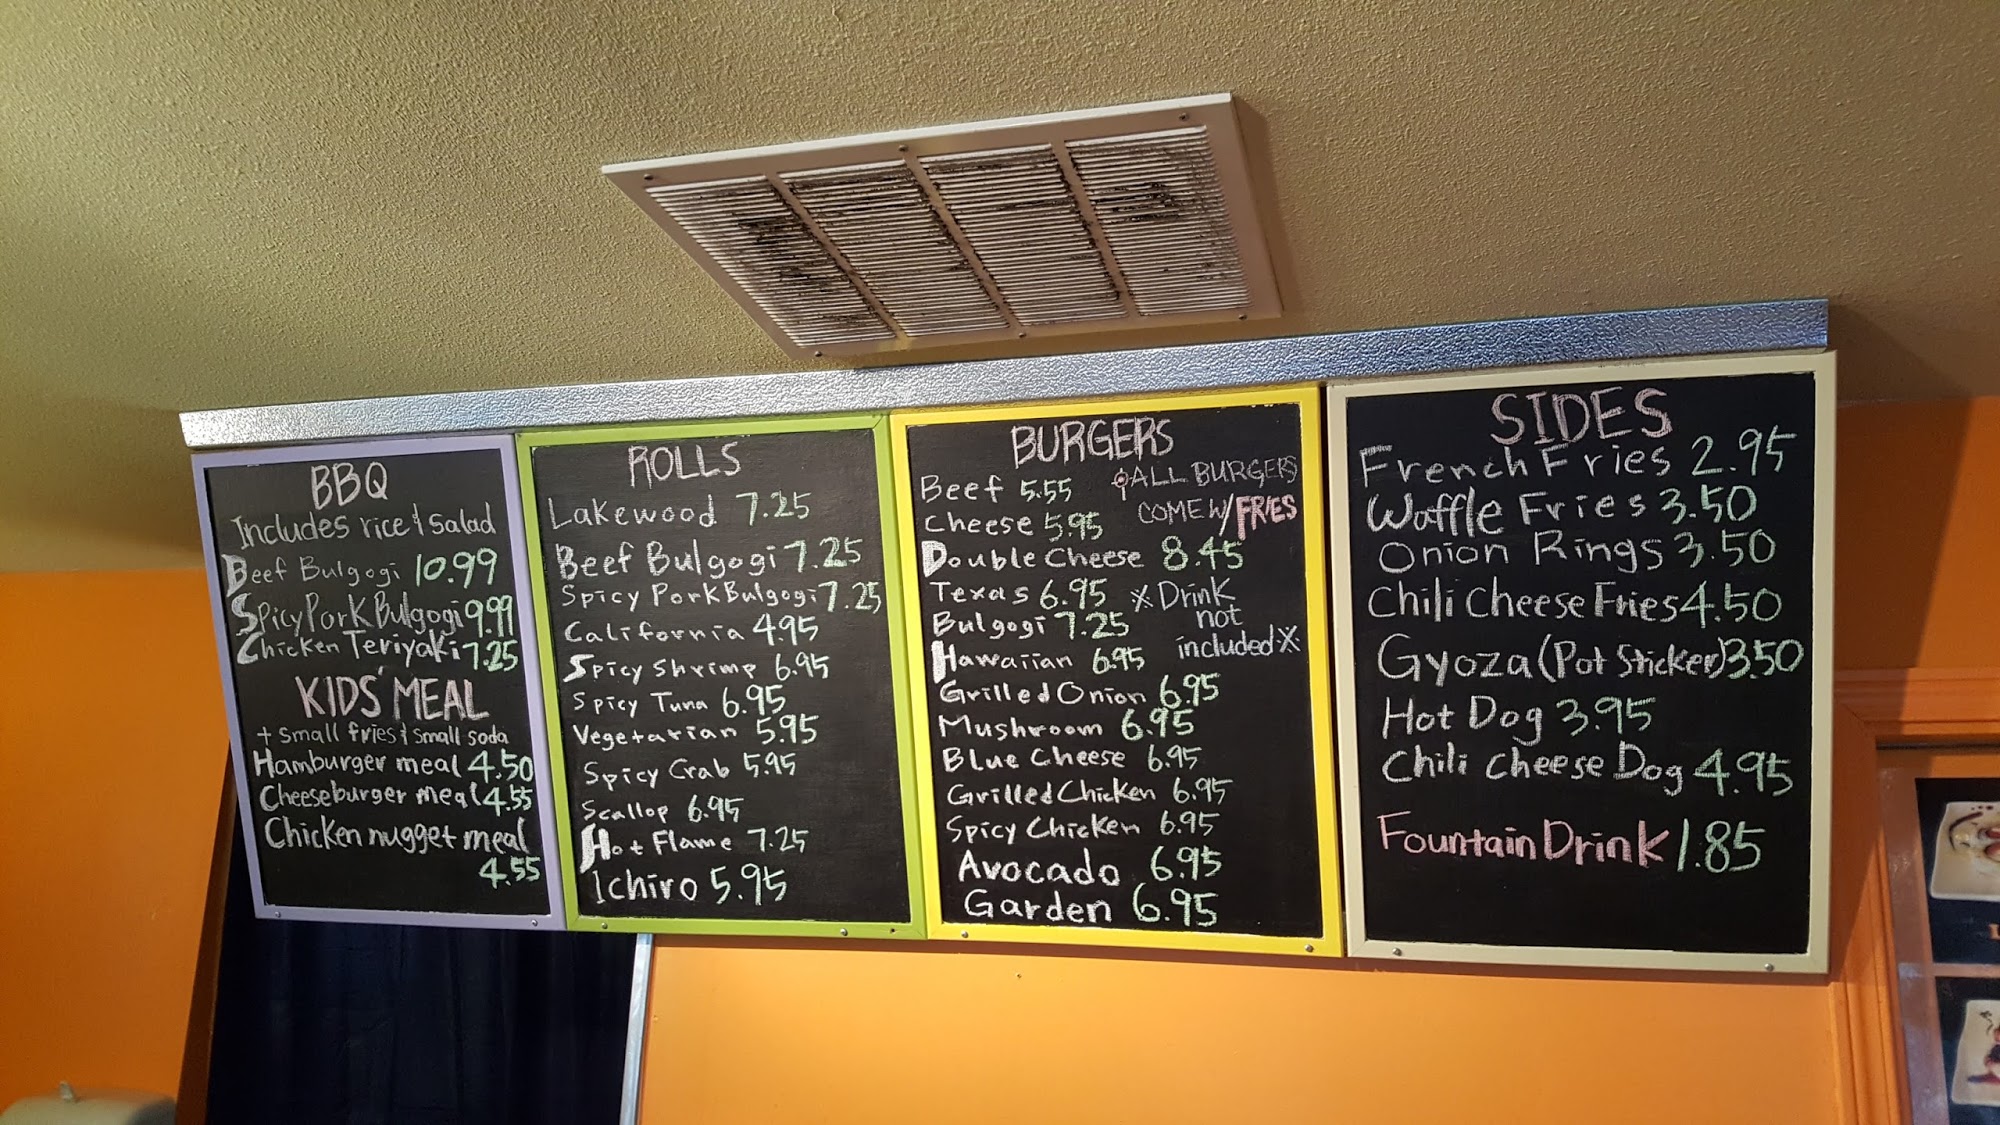 BBQ
Includes rice & salad
Beef Bulgogi 10.99
Spicy Pork Bulgogi 9.99
Chicken Teriyaki 7.25
KIDS' MEAL
+ small fries & small soda
Hamburger meal 4.50
Cheeseburger meal 4.55
Chicken nugget meal
4.55
ROLLS
Lakewood 7.25
Beef Bulgogi 7.25
Spicy Pork Bulgogi 7.25
California 4.95
Spicy Shrimp 6.95
Spicy Tuna 6.95
Vegetarian 5.95
Spicy Crab 5.95
Scallop 6.95
Hot Flame 7.25
Ichiro 5.95
BURGERS
ALL BURGERS
COME W/ FRIES
Beef 5.55
Cheese 5.95
Double Cheese 8.45
Texas 6.95
Bulgogi 7.25
Hawaiian 6.95
Grilled Onion 6.95
Mushroom 6.95
Blue Cheese 6.95
Grilled Chicken 6.95
Spicy Chicken 6.95
Avocado 6.95
Garden 6.95
* Drink
not
included *
SIDES
French Fries 2.95
Waffle Fries 3.50
Onion Rings 3.50
Chili Cheese Fries 4.50
Gyoza (Pot Sticker) 3.50
Hot Dog 3.95
Chili Cheese Dog 4.95
Fountain Drink 1.85